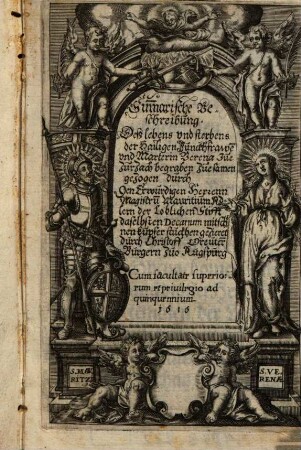 Sumarische Be-
schreibung.
Deß lebens vnd sterbens
der Hailigen Junckhfrawe
vnd Marterin Verena zue
Zurzach begraben zuesamen
gezogen durch
Den Erwürdigen Herrenn
Magistru Mauritium
lern der Loblichen Stifft
daselbsten Decanum mit schö
nen kupfer stückhen geziert
durch
Burgern zuo Augspurg
Cum facultate superio-
rum et privilegio ad
quinquennium.
1616
S. MAV
RITZ
S. VE
RENAE